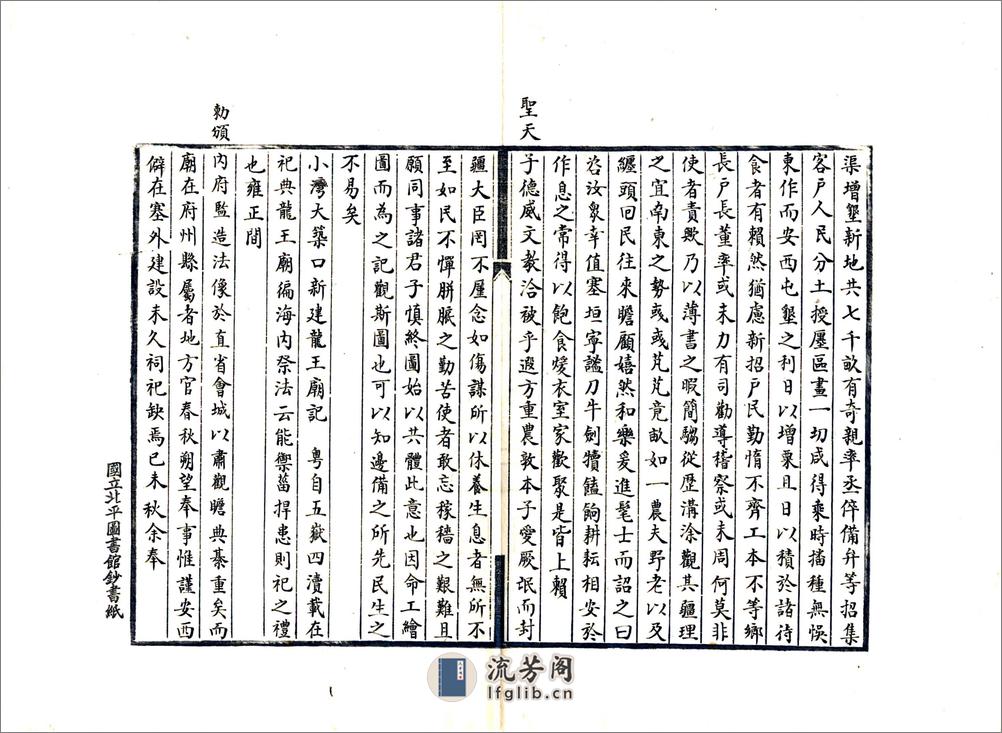 渠增墾新地共七千畝有奇親率丞倅備弁等招集
客戶人民分土授廛區畫一切咸得乘時播種無悞
東作而安西屯墾之利日以增粟且日以積於諸待
食者有賴然猶慮新招戶民勤惰不齊工本不等鄉
長戶長董率或未力有司勸導稽察或未周何莫非
使者責歟乃以薄書之暇簡騶從歷溝涂觀其疆理
之宜南東之勢彧彧芃芃竟畝如一農夫野老以及
纏頭回民往來瞻顧嬉然和樂爰進髦士而詔之曰
咨汝衆幸值塞垣寧謐刀牛劍犢饁餉耕耘相安於
作息之常得以飽食煖衣室家歡聚是皆上賴
聖天
子德威文教洽被乎遐方重農敦本子愛厥氓而封
疆大臣罔不廑念如傷謀所以休養生息者無所不
至如民不憚胼胝之勤苦使者敢忘稼穡之艱難且
願同事諸君子慎終圖始以共體此意也因命工繪
圖而為之記觀斯圖也可以知邊備之所先民生之
不易矣
小灣大築口新建龍王廟記 粤自五嶽四瀆載在
祀典龍王廟徧海內祭法云能禦菑捍患則祀之禮
也雍正間
勅頒
內府監造法像於直省會城以肅觀瞻典綦重矣而
廟在府州縣屬者地方官春秋朔望奉事惟謹安西
僻在塞外建設未久祠祀缺焉已未秋余奉
國立北平圖書館鈔書紙
流芳阁
lfglib.cn